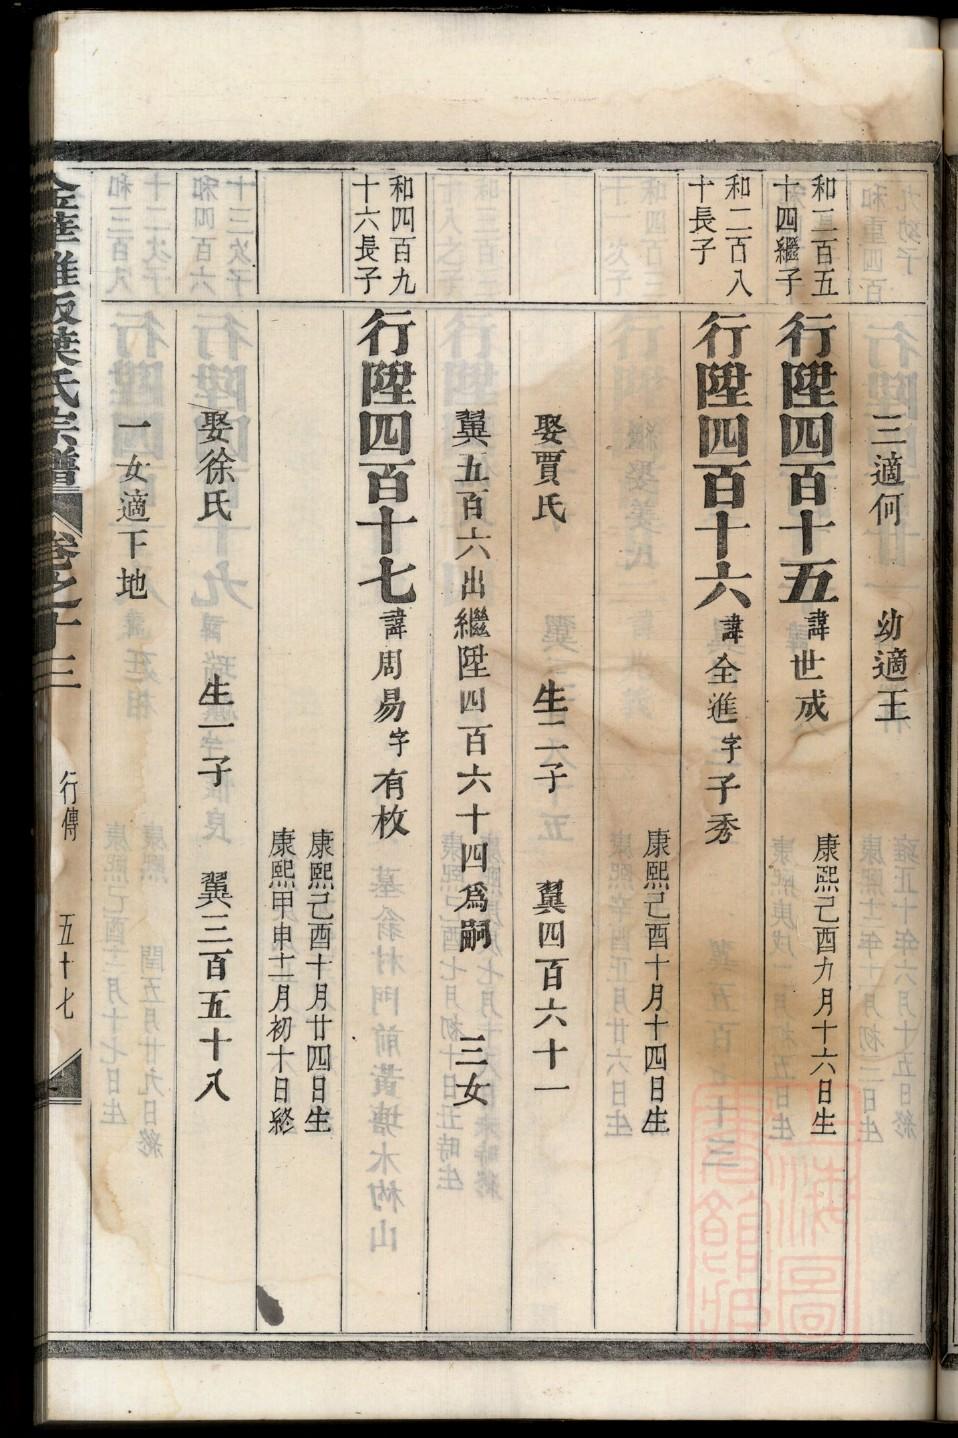 三適何　幼適王
和二百五
十四繼子
行陞四百十五諱世成
康熙己酉九月十六日生
和二百八
十長子
行陞四百十六諱全進字子秀
康熙己酉十月十四日生
娶賈氏　生二子　翼四百六十一
翼五百六出繼陞四百六十四爲嗣　三女
和四百九
十六長子
行陞四百十七諱周易字有枚
康熙己酉十月廿四日生
康熙甲申十二月初十日終
娶徐氏　生一子　翼三百五十八
一女適下地
葉氏宗譜　卷之十三　行傳　五十七